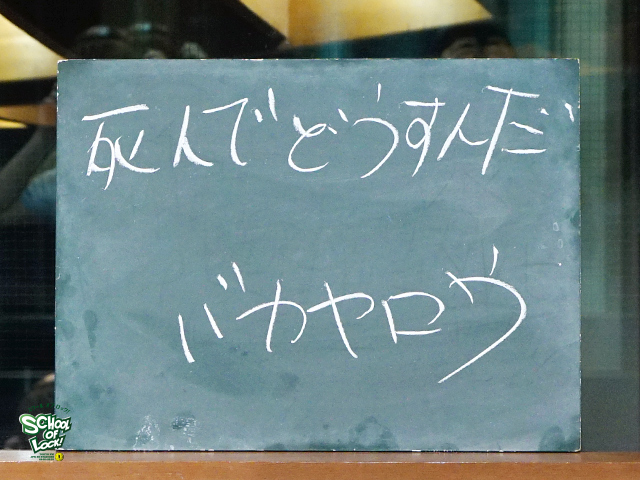 死んでどうすんだ
バカヤロウ
SCHOOL
OF
LOCK!